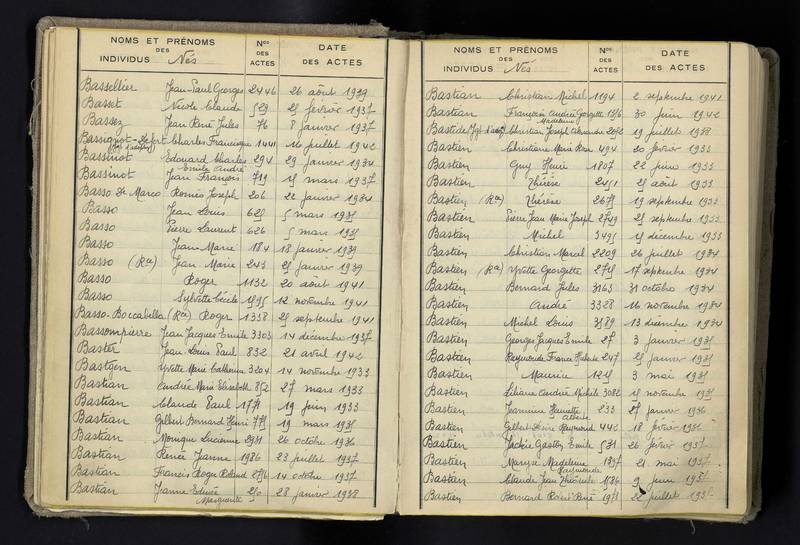 NOMS ET PRÉNOMS
DES
INDIVIDUS Nés
Nos
DES
ACTES
DATE
DES ACTES
Bassellier Jean-Paul Georges 2446 26 août 1939
Basset Nicole Claude 529 25 février 1937
Bassez Jean René Jules 76 8 janvier 1937
Charles 1441 16 juillet 1942
Bassinot Edouard Charles 294 29 janvier 1934
Emile André
Bassinot Jean François 719 15 mars 1937
Basso Romeo Joseph 206 22 janvier 1934
Basso Jean Louis 625 5 mars 1935
Basso Pierre Laurent 626 5 mars 1935
Basso Jean-Marie 184 18 janvier 1939
Basso (Rca) Jean Marie 243 25 janvier 1939
Basso Roger 1132 20 août 1941
Basso Sylvette Cécile 1595 12 novembre 1941
Basso-Boccabella (Rca) Roger 1338 25 septembre 1941
Bassompierre Jean Jacques Emile 3303 14 décembre 1937
Baster Jean Louis Paul 832 21 avril 1942
Bastgen Yvette Marie Catherine 3204 14 novembre 1933
Bastian Andrée Marie Elisabeth 852 27 mars 1933
Bastian Claude Paul 1771 19 juin 1933
Bastian Gilbert Bernard Henri 775 19 mars 1935
Bastian Monique Lucienne 2931 26 octobre 1936
Bastian Renée Jeanne 1986 23 juillet 1937
Bastian Francis Roger Roland 2776 14 octobre 1937
Bastian Jeanne Edmée 250 28 janvier 1938
Marguerite
NOMS ET PRÉNOMS
DES
INDIVIDUS Nés
Nos
DES
ACTES
DATE
DES ACTES
Bastian Christian Michel 1194 2 septembre 1941
Bastian François André Georgette 1376 30 juin 1942
Madeleine
Christian Joseph Alexandre 2092 19 juillet 1938
Bastien Christiane Marie Rose 494 20 février 1933
Bastien Guy Henri 1807 22 juin 1933
Bastien Thérèse 2451 25 août 1933
Bastien (Rca) Thérèse 2675 19 septembre 1933
Bastien Pierre Jean Marie Joseph 2749 25 septembre 1933
Bastien Michel 3495 15 décembre 1933
Bastien Christian Marcel 2209 26 juillet 1934
Bastien (Rca) Yvette Georgette 2715 17 septembre 1934
Bastien Bernard Jules 3163 31 octobre 1934
Bastien André 3328 16 novembre 1934
Bastien Michel Louis 3589 13 décembre 1934
Bastien Georges Jacques Emile 27 3 janvier 1935
Bastien Raymonde France 247 25 janvier 1935
Bastien Maurice 1215 3 mai 1935
Bastien Liliane Andrée Michèle 3082 15 novembre 1935
Bastien Jeannine Henriette 233 27 janvier 1936
Bastien Gilbert Pierre Raymond 442 18 février 1936
Bastien Jackie Gaston Emile 531 26 février 1937
Bastien Maryse Madeleine 1397 21 mai 1937
Raymonde
Bastien Claude Jean 1586 9 juin 1937
Bastien Bernard René 1971 22 juillet 1937